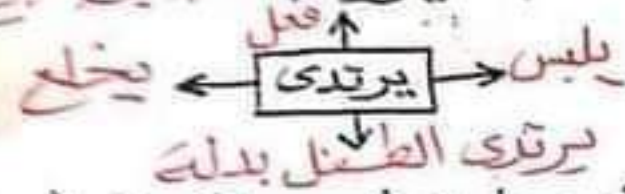 فعل
يلبس يرتدى يخلع
يرتدى الطفل بدلة